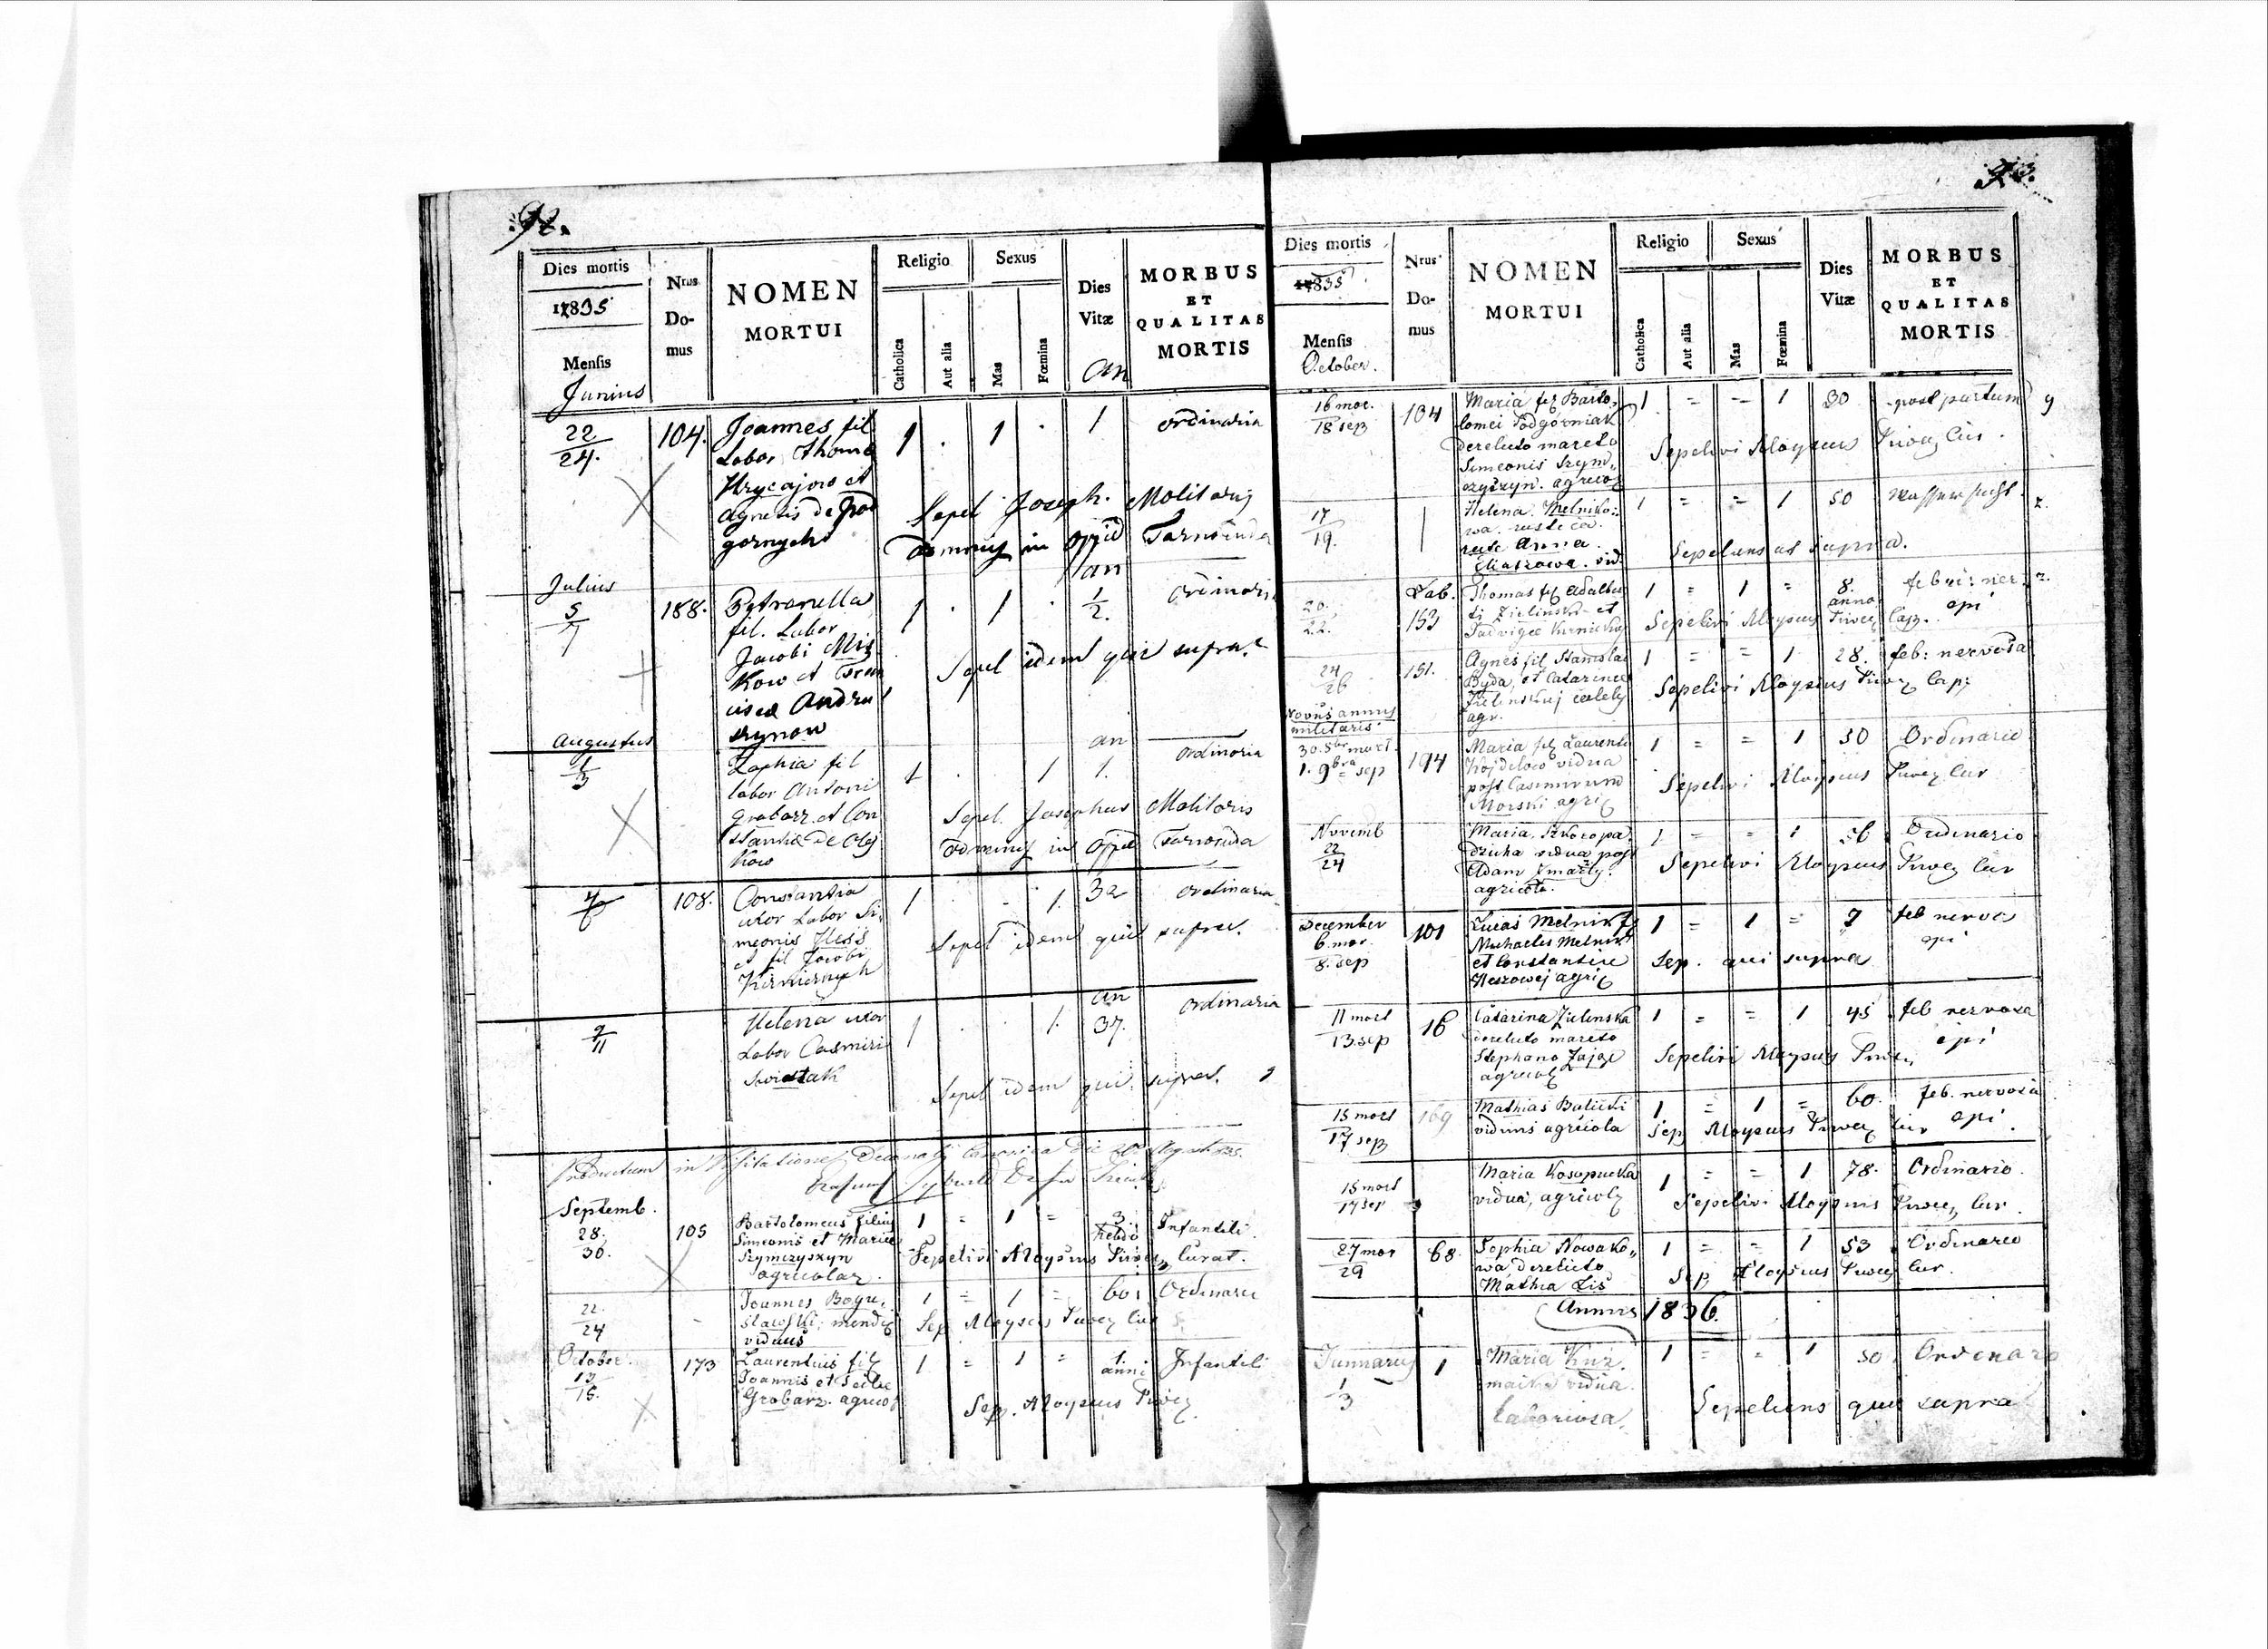 92.
Dies mortis
1835
Mensis
Junius
Nrus
Do-
mus
NOMEN
MORTUI
Religio
Catholica
Aut alia
Sexus
Mas
Fœmina
Dies
Vitæ
an
MORBUS
ET
QUALITAS
MORTIS
22
24.
104.
Joannes fil
Labor Thoma
Hrycajow et
Agnetis de Pod
gornych
1 . 1 . 1 ordinaria
Sepel Joseph. Molitoris
in oppid Tarnoruda
Julius
5
7
188.
Petronella
fil. Labor
Jacobi Mis
kow et Fran
cisca Andru
szynow
1 . 1 . an 1/2. ordinaria
Sepel idem qui supra.
Augustus
1
3
Zophia fil
labor Antoni
Grabarz et Con
stantia de Olej
kow
1 . 1 an 1. ordinaria
Sepel. Josephus Molitoris
in Oppid Tarnoruda
4
6
108.
Constantia
uxor Labor Si
meonis Hess
et fil Jacobi
1 . - 1. 32 ordinaria
Sepel idem qui supra.
9
11
Helena uxor
Labor Casmiri
Swistak
1 . . 1. an 37. ordinaria
Sepel idem qui supra.
Productum in Visitatione Canonica die
Septemb.
28.
30.
105
Bartolomeus filius
Simeonis et Mariae
Szymczyszyn
agricolar.
1 = 1 = 3 hebdo Infantili.
Sepelivi Aloysius Curat.
22.
24
Joannes Bogu,
slawski, mendic
viduus
1 = 1 = 60 Ordinari
Sep Aloysius Cur
October.
13
15.
173
Laurentius fil
Joannis et
Grabarz. agricol
1 = 1 = 1 anni Infantili
Sep. Aloysius
Dies mortis
1835
Mensis
October.
Nrus
Do-
mus
NOMEN
MORTUI
Religio
Catholica
Aut alia
Sexus
Mas
Fœmina
Dies
Vitæ
MORBUS
ET
QUALITAS
MORTIS
16 mor.
18 sep
104
Maria fil Barto,
lomei Podgórniak
derelicto mareto
Simeonis Szym,
czyszyn. agricol
1 = - 1 30 post partum
Sepelivi Aloysius Cur.
17
19.
Helena Melniko,
wa. rustica.
Anna
Eliaszowa. vid
1 = = 1 50 Wassersucht.
Sepeliens ut supra.
20.
22.
Lab.
153
Thomas fil Adalber
ti Zielinski et
Jadvigae
1 = 1 = 8. anno febri: ner. epi
Sepelivi Aloysius Cap.
24
26
151.
Agnes fil Stanislai
Byda, et Catarinae
Zielinskiej
agr.
1 = = 1 28. feb: nervosa
Sepelivi Aloysius Cap:
Novus annus
militaris
30. 8br mort.
1. 9bra sep
194
Maria fil Laurenti
Wojdilow vidua
post Casimirum
Morski agric
1 = = 1 30 Ordinario
Sepelivi Aloysius Cur
Novemb
22
24
Maria
vidua post
Adam
agricola.
1 = = 1 56 Ordinario
Sepelivi Aloysius Cur
December
6. mor.
8. sep
101
Lucas Melnik f
Michaelis Melnik
et Constantiae
Heszowej agric
1 = 1 = 7 feb nervos epi
Sep. qui supra
11 mort
13. sep
16
Catarina Zielinska
derelicto mareto
Stephano Zając
agricol
1 = = 1 45 feb nervosa epi
Sepelivi Aloysius
15 mort
17 sep
169
Mathias Balicki
viduus agricola
1 = 1 = 60. feb. nervosa epi.
Sep Aloysius Cur
15 mort
17 sep
Maria Kosopucka
vidua, agricol
1 = = 1 78. Ordinario.
Sepelivi Aloysius Cur.
27 mor
29
68.
Sophia Nowako,
wa derelicto
Mathia Lis
1 = = 1 53 Ordinario
Sep Aloysius Cur.
Annus 1836.
Januarius
1
3
1
Maria Kuz.
vidua.
laboriosa.
1 = = 1 50 Ordinaro
Sepeliens qui supra